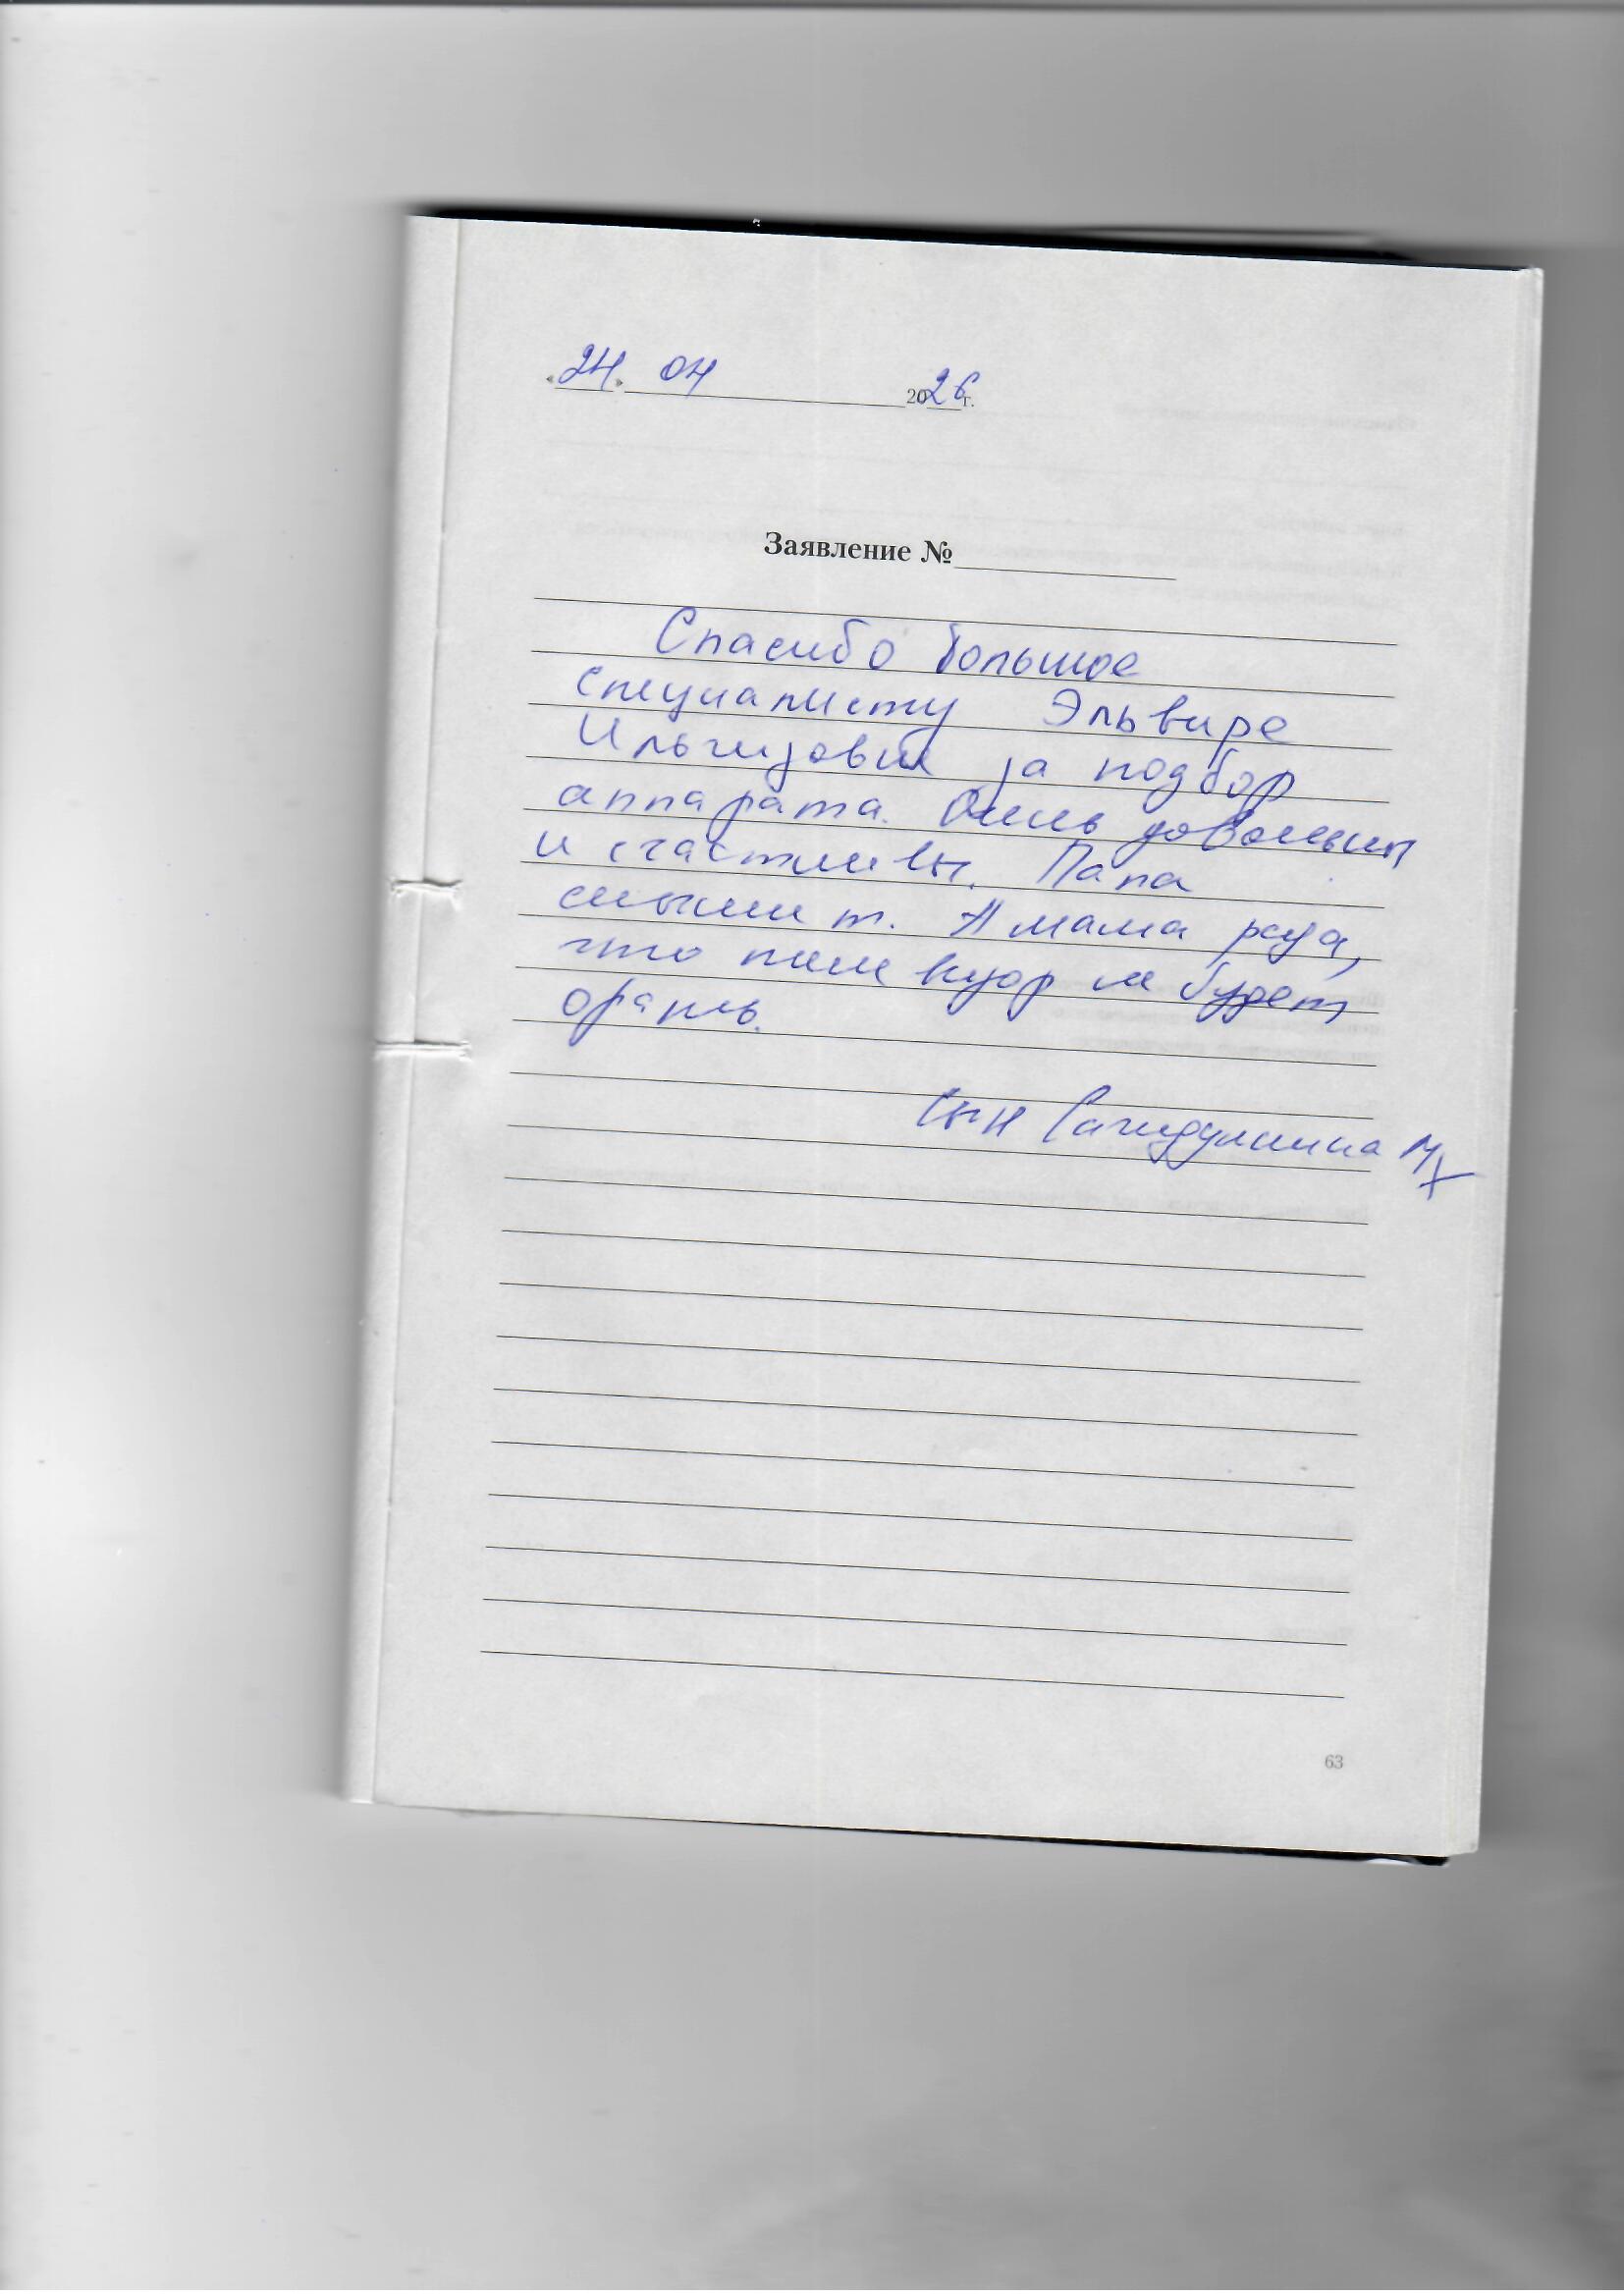 «24» 04 2026 г.
Заявление №
Спасибо большое
специалисту Эльвире
Ильгизовне за подбор
аппарата. Очень довольны
и счастливы. Папа
слышит. А мама рада,
что телевизор не будет
орать.
Сын Сагидуллина М
63